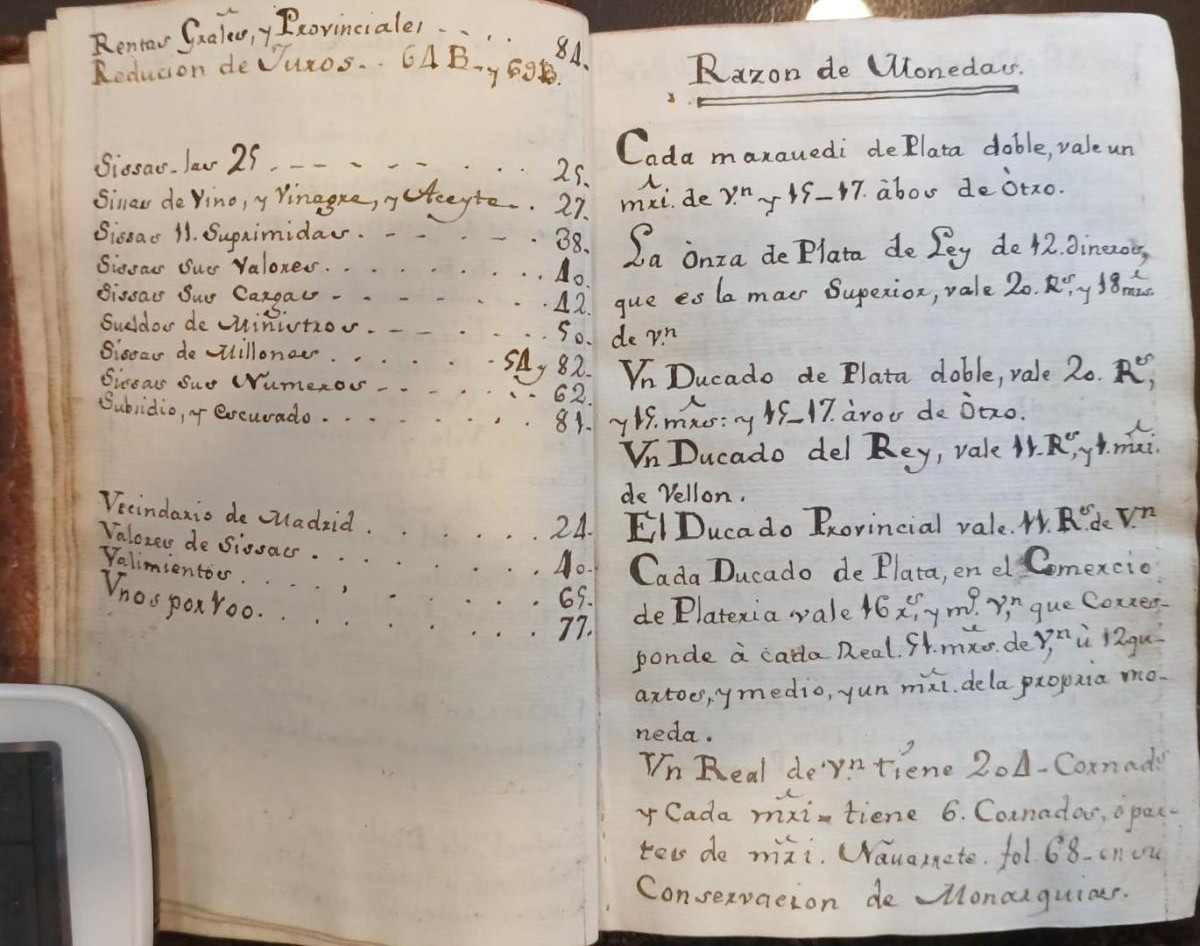 Rentas Grãles, y Provinciales . . . . 84.
Reducion de Juros. . 64 B. y 69 B.
Sissas las 25 . . . . . . . . 25.
Sisas de Vino, y Vinagre, y Aceyte. . 27.
Sissas 11. Suprimidas . . . . . . 38.
Sissas sus Valores . . . . . . . 40.
Sissas Sus Cargas . . . . . . . 42.
Sueldos de Ministros . . . . . . 50.
Sissas de Millones . . . . . 54 y 82.
Sissas sus Numeros . . . . . . 62.
Subsidio, y escusado . . . . . . . 81.
Vecindario de Madrid . . . . . . 24.
Valores de Sissas . . . . . . . 40.
Valimientos . . . . . . . . 65.
Vnos por 100. . . . . . . . 77.
Razon de Monedas.
Cada marauedi de Plata doble, vale un
mr̃i. de V.n y 15–17. àbos de Òtro.
La Ònza de Plata de Ley de 12. dineros,
que es la mas Superior, vale 20. R.s, y 18 mrs̃.
de V.n
Vn Ducado de Plata doble, vale 20. R.es,
y 15. mrs̃: y 15–17. àvos de Òtro.
Vn Ducado del Rey, vale 11. R.s, y 1. mr̃i.
de Vellon.
El Ducado Provincial vale. 11. R.s de V.n
Cada Ducado de Plata, en el Comercio
de Plateria vale 16 r.es, y m.o V.n, que Corres-
ponde à cada Real. 51. mrs̃. de V.n, ù 12 qu-
artos, y medio, y un mr̃i. de la propria mo-
neda.
Vn Real de V.n tiene 204 – Cornad.s
y Cada mr̃i = tiene 6. Cornados, ó par-
tes de mr̃i. Nauarrete. fol. 68 – en su
Conservacion de Monarquias.